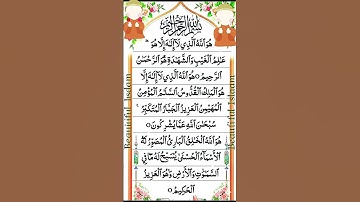 بسم الله الرحمن الرحيم
هُوَ اللّٰهُ الَّذِي لَا إِلٰهَ إِلَّا هُوَ ۚ
عٰلِمُ الْغَيْبِ وَالشَّهٰدَةِ هُوَ الرَّحْمٰنُ
الرَّحِيمُ ○ هُوَ اللّٰهُ الَّذِي لَا إِلٰهَ إِلَّا
هُوَ الْمَلِكُ الْقُدُّوسُ السَّلٰمُ الْمُؤْمِنُ
الْمُهَيْمِنُ الْعَزِيزُ الْجَبَّارُ الْمُتَكَبِّرُ ۚ
سُبْحٰنَ اللّٰهِ عَمَّا يُشْرِكُونَ ○
هُوَ اللّٰهُ الْخٰلِقُ الْبَارِئُ الْمُصَوِّرُ لَهُ
الْأَسْمَاءُ الْحُسْنٰى يُسَبِّحُ لَهُ مَا فِي
السَّمٰوٰتِ وَالْأَرْضِ وَهُوَ الْعَزِيزُ
الْحَكِيمُ ○
Beautiful_Islam
Beautiful_Islam